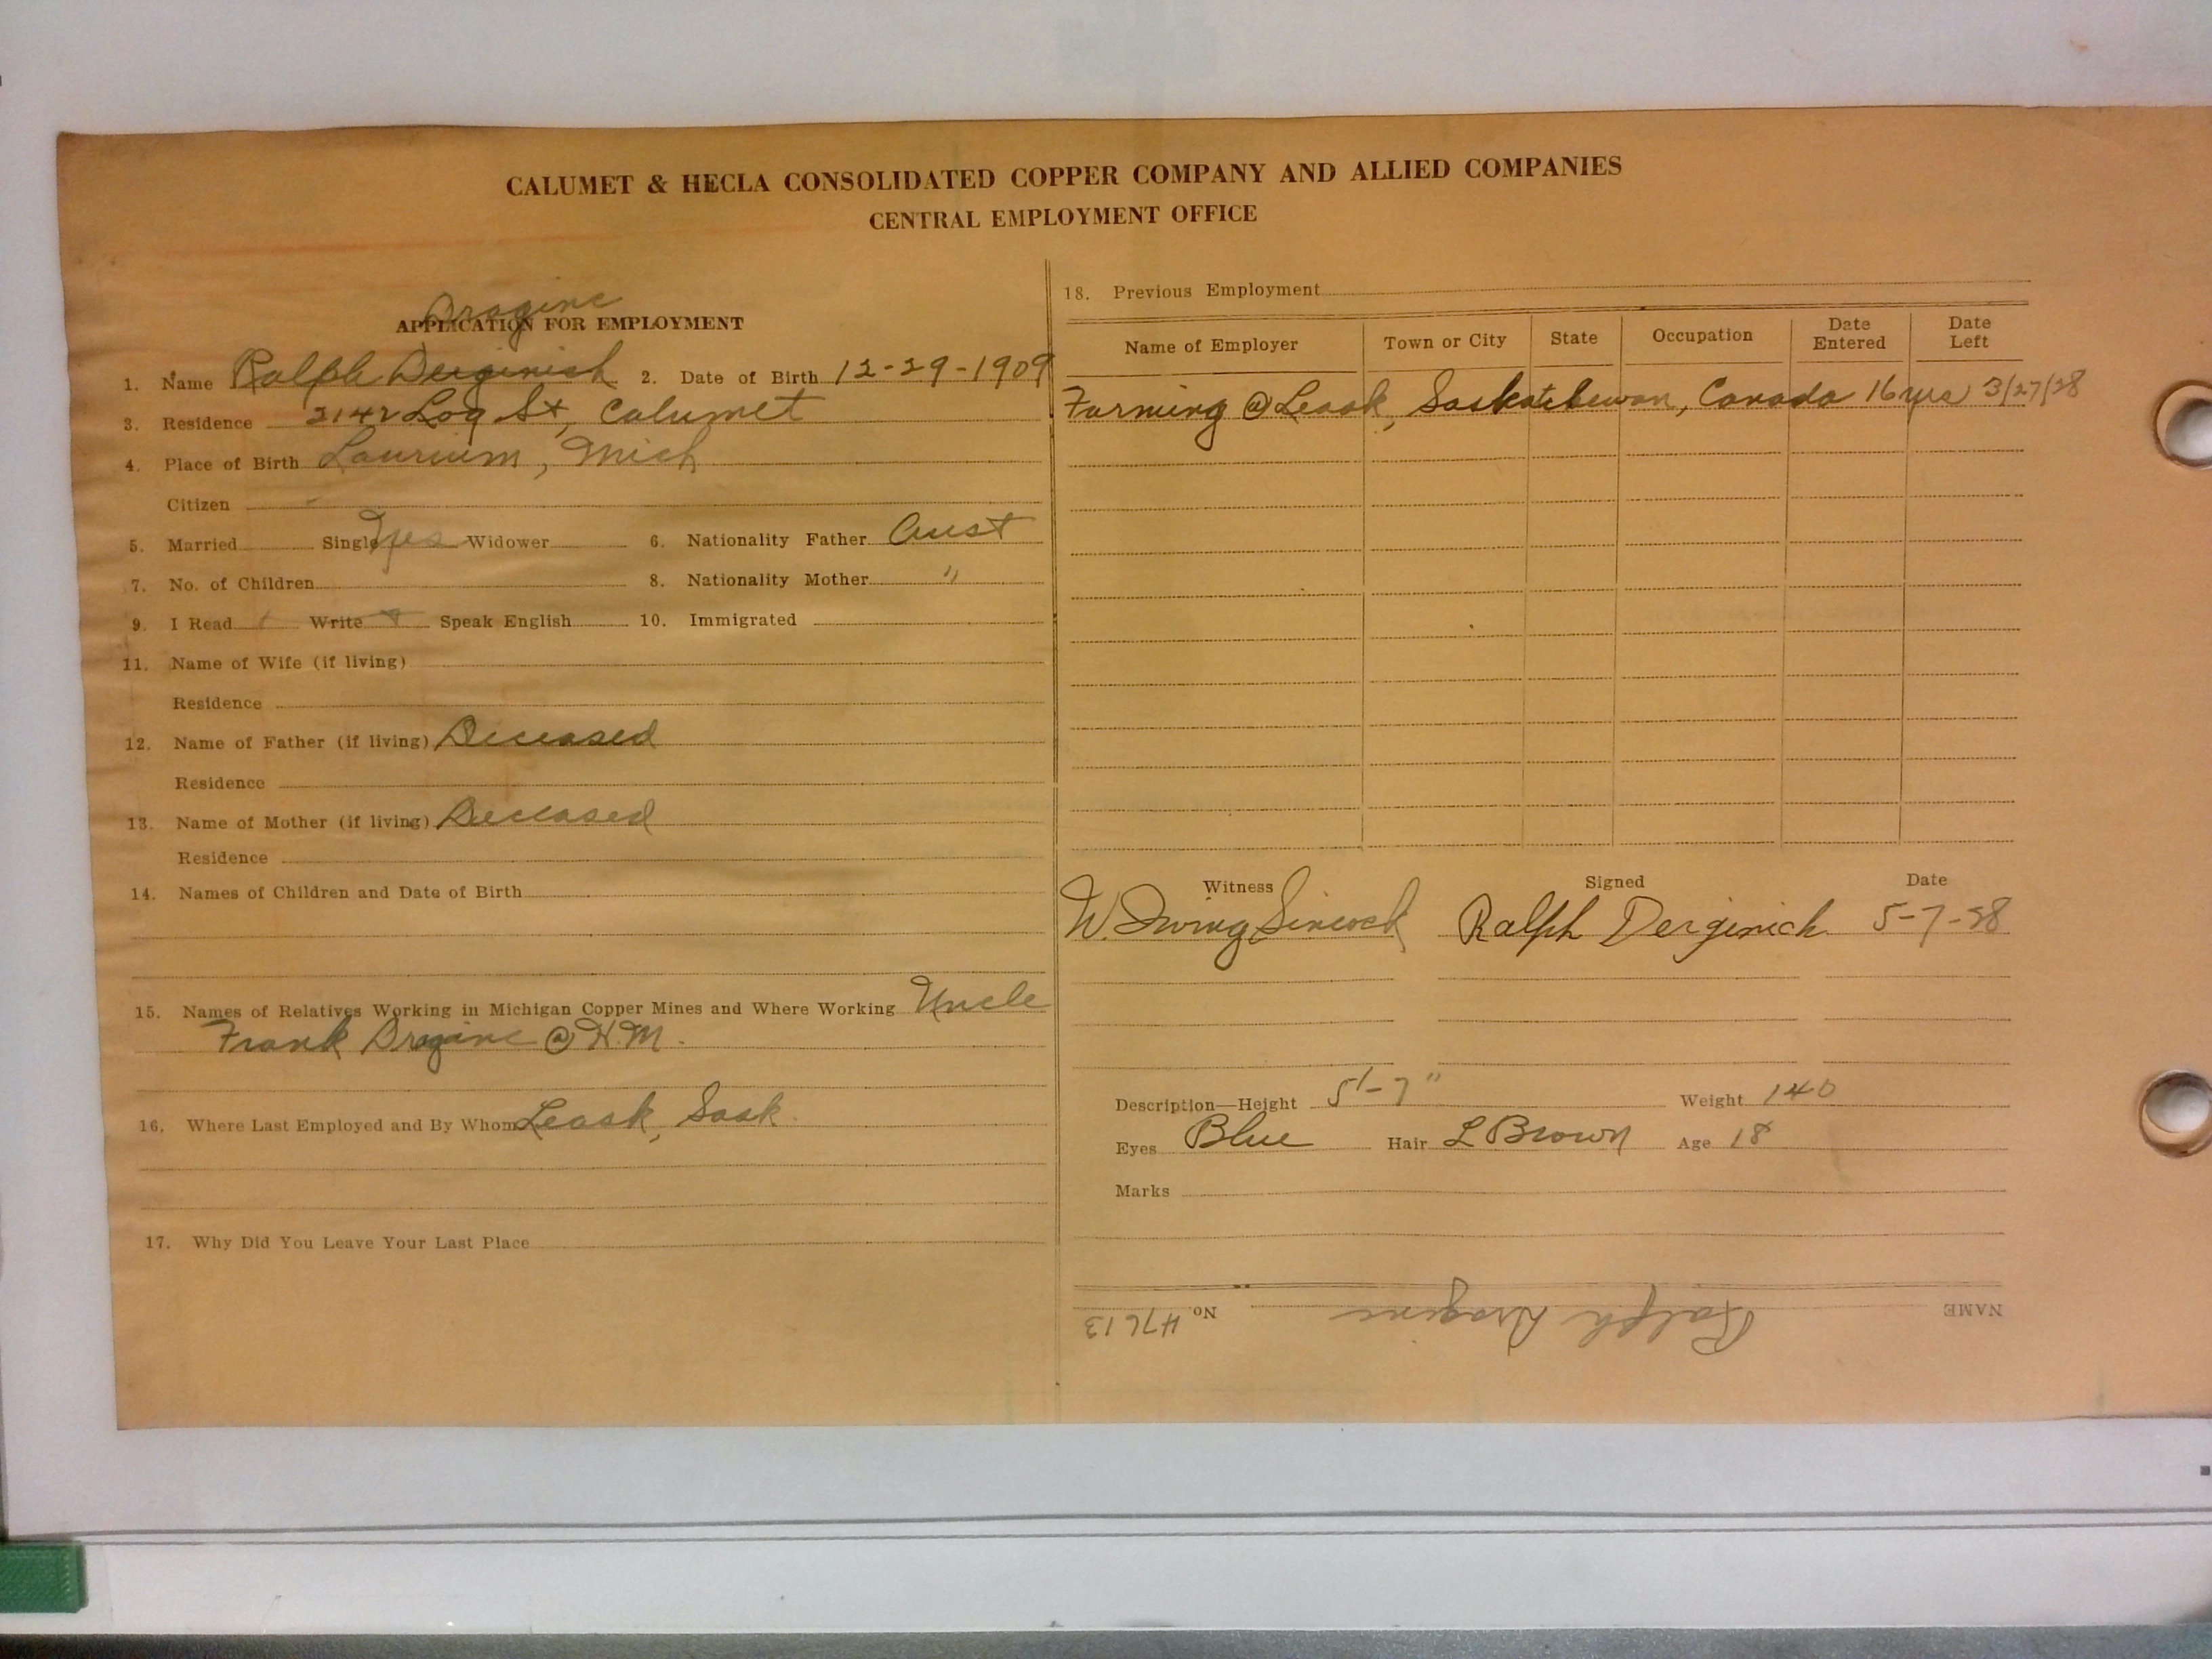 CALUMET & HECLA CONSOLIDATED COPPER COMPANY AND ALLIED COMPANIES
CENTRAL EMPLOYMENT OFFICE
Draginc
APPLICATION FOR EMPLOYMENT
1. Name Ralph Derginich 2. Date of Birth 12-29-1909
3. Residence 2142 Log St, Calumet
4. Place of Birth Laurium, Mich
Citizen
5. Married Single yes Widower 6. Nationality Father Aust
7. No. of Children 8. Nationality Mother "
9. I Read Write Speak English 10. Immigrated
11. Name of Wife (if living)
Residence
12. Name of Father (if living) Deceased
Residence
13. Name of Mother (if living) Deceased
Residence
14. Names of Children and Date of Birth
15. Names of Relatives Working in Michigan Copper Mines and Where Working Uncle
Frank Draginc @ H.M.
16. Where Last Employed and By Whom Leask, Sask.
17. Why Did You Leave Your Last Place
18. Previous Employment
Name of Employer Town or City State Occupation Date Entered Date Left
Farming @ Leask, Saskatchewan, Canada 16 yrs 3/27/28
Witness Signed Date
W. Irving Sincock Ralph Derginich 5-7-28
Description—Height 5'-7" Weight 140
Eyes Blue Hair L Brown Age 18
Marks
NAME Ralph Draginc No. 47613